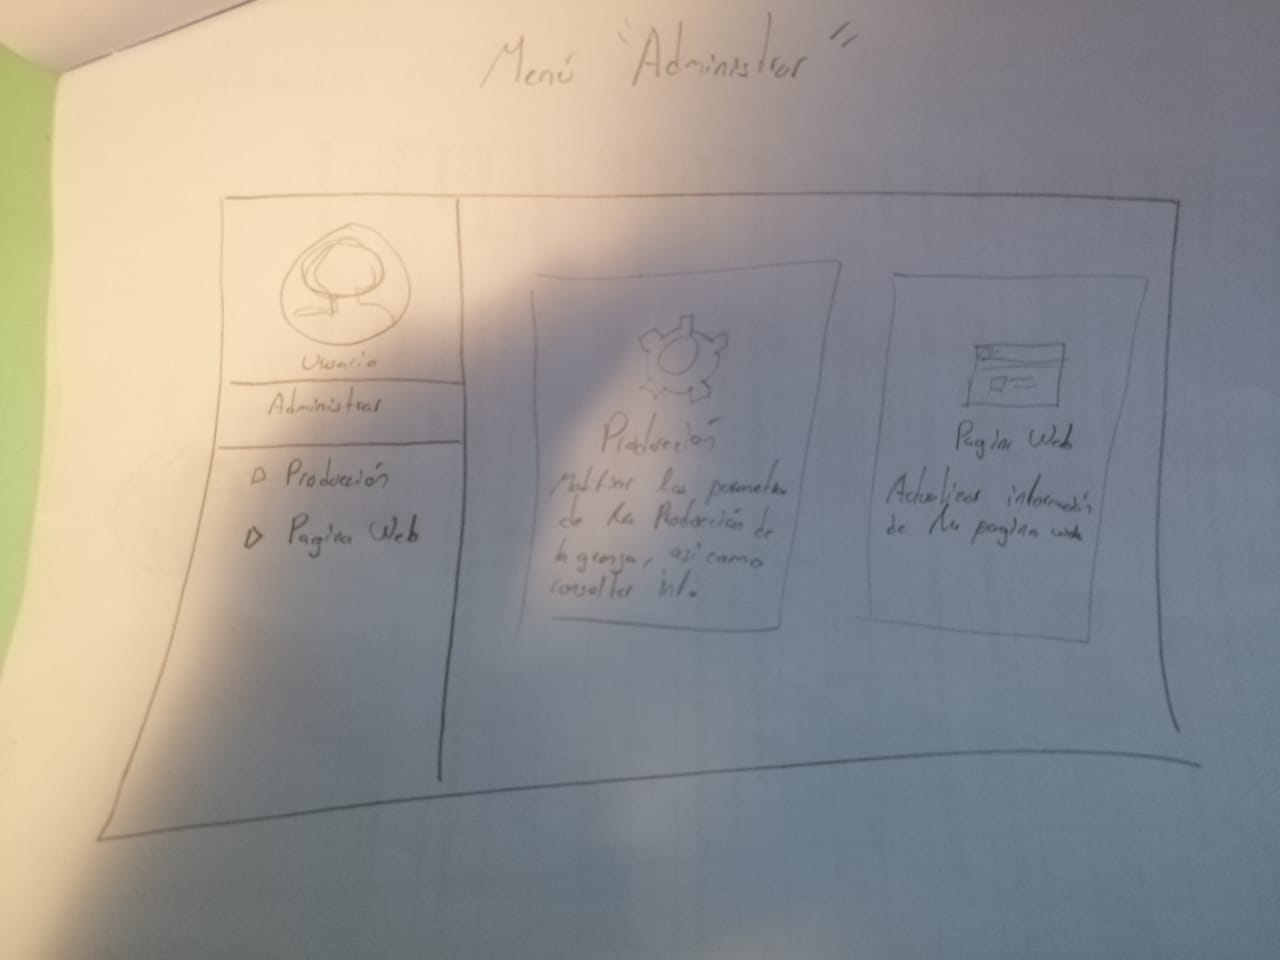 Menú "Administrar"
Usuario
Administrar
Producción
Pagina Web
Producción
Modificar los parametros
de la Producción de
la granja, asi como
consultar inf.
Pagina Web
Actualizar información
de la pagina web